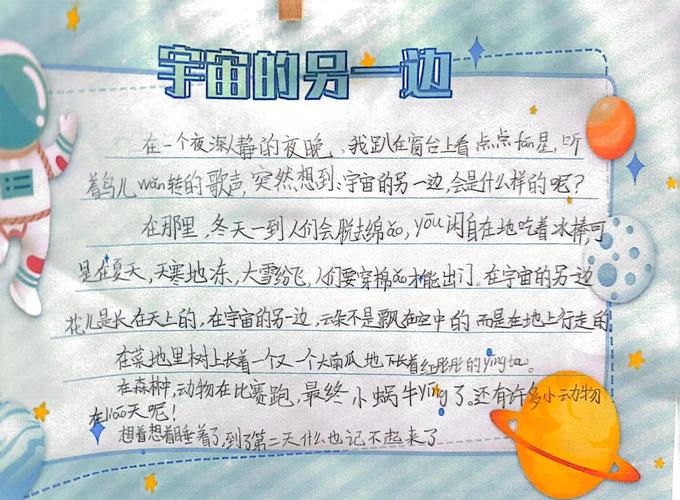 宇宙的另一边
在一个夜深人静的夜晚,我趴在窗台上看点点fán星,听
着鸟儿wǎn转的歌声,突然想到:宇宙的另一边,会是什么样的呢?
在那里,冬天一到人们会脱去绵ǎo,yōu闪自在地吃着冰棒,可
是在夏天,天寒地冻,大雪纷飞,人们要穿棉ǎo才能出门。在宇宙的另一边
花儿是长在天上的,在宇宙的另一边,云朵不是飘在空中的 而是在地上行走的
在菜地里树上长着一个又一个大南瓜地下长着红彤彤的yīng táo。
在森林中,动物在比赛跑,最终小蜗牛yíng了。还有许多小动物
在liáo天呢!
想着想着睡着了,到了第二天什么也记不起来了